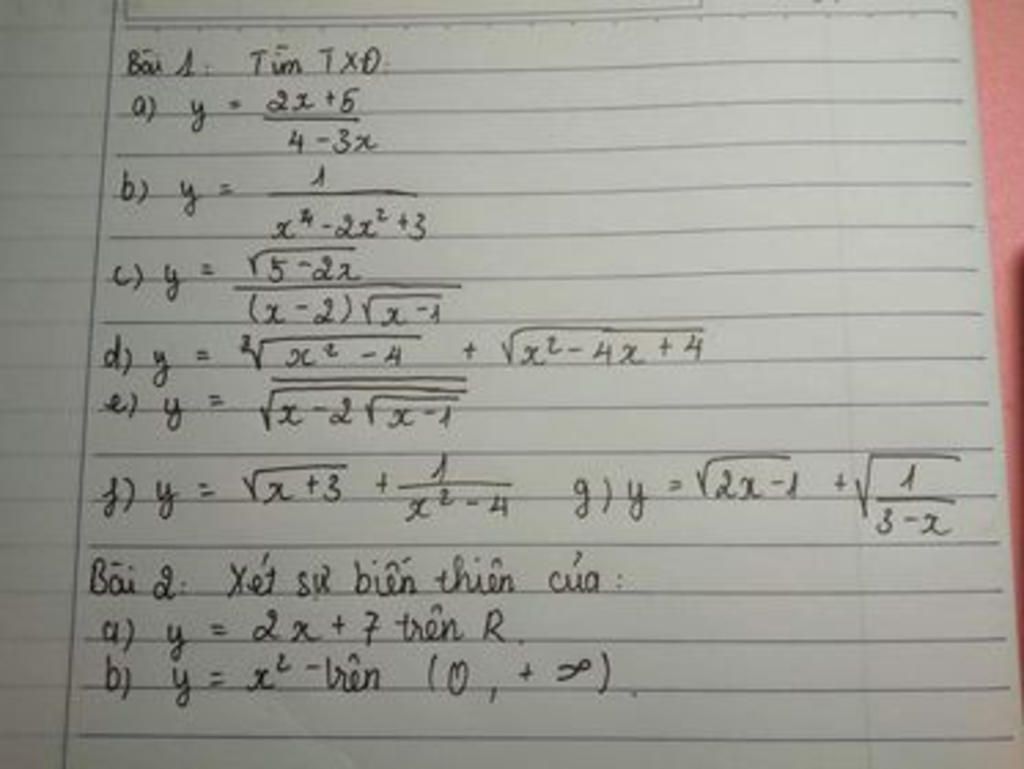 Bài 1: Tìm TXĐ:
a) y = (2x+5)/(4-3x)
b) y = 1/(x⁴-2x²+3)
c) y = √(5-2x)/((x-2)√(x-1))
d) y = ³√(x²-4) + √(x²-4x+4)
e) y = √(x-2√(x-1))
f) y = √(x+3) + 1/(x²-4) g) y = √(2x-1) + √(1/(3-x))
Bài 2: Xét sự biến thiên của:
a) y = 2x+7 trên R.
b) y = x² trên (0, +∞).